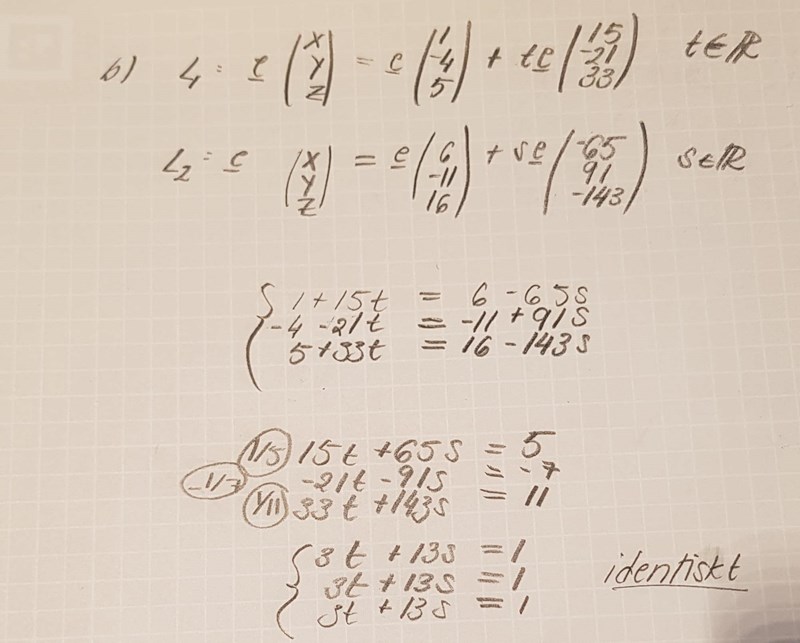 b) L₁ : e (X Y Z) = e (1 -4 5) + te (15 -21 33) t∈ℝ
L₂ : e (X Y Z) = e (6 -11 16) + se (-65 91 -143) s∈ℝ
{ 1 + 15t = 6 - 65s
-4 - 21t = -11 + 91s
5 + 33t = 16 - 143s
(1/5) 15t + 65s = 5
(-1/7) -21t - 91s = -7
(1/11) 33t + 143s = 11
{ 3t + 13s = 1
3t + 13s = 1 identiskt
3t + 13s = 1